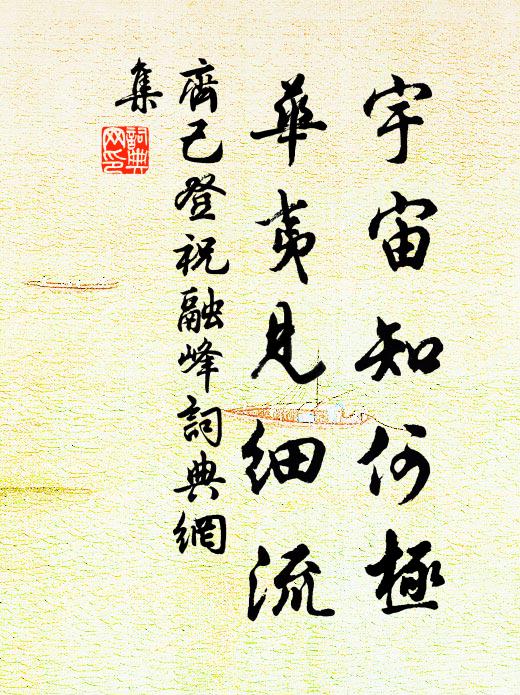 宇宙知何極
華夷見細流
齊己登祝融峰詞典網
集
詞典
网印